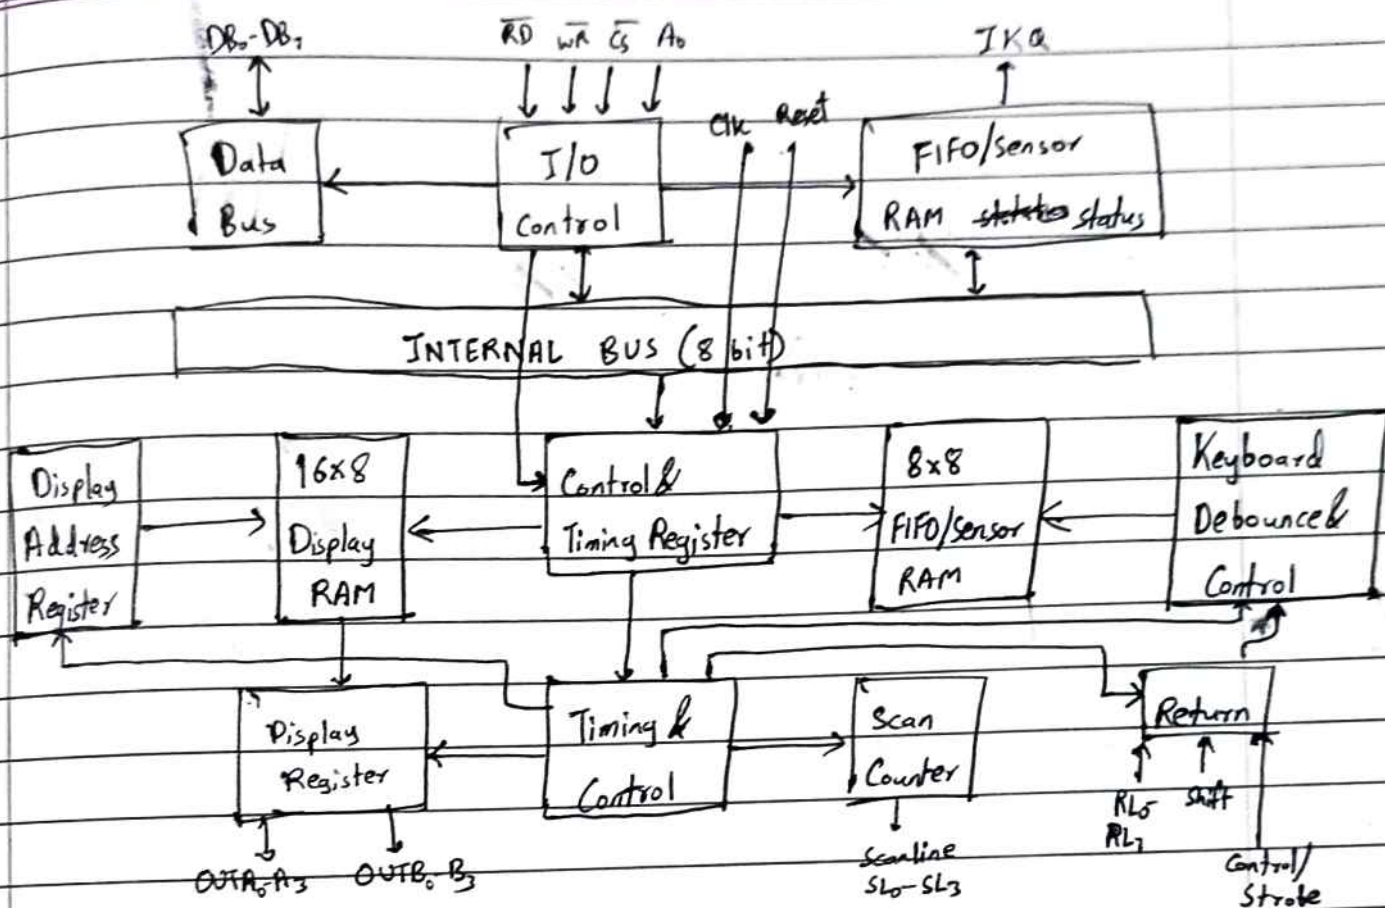 DB₀-DB₇ R̅D̅ W̅R̅ C̅S̅ A₀ IKQ
Clk Reset
Data
Bus
I/O
Control
FIFO/sensor
RAM status
INTERNAL BUS (8 bit)
Display
Address
Register
16x8
Display
RAM
Control &
Timing Register
8x8
FIFO/sensor
RAM
Keyboard
Debounce &
Control
Display
Register
Timing &
Control
Scan
Counter
Return
OUTA₀-A₃ OUTB₀-B₃
Scanline
SL₀-SL₃
RL₀-
RL₇
Shift
Control/
Strobe